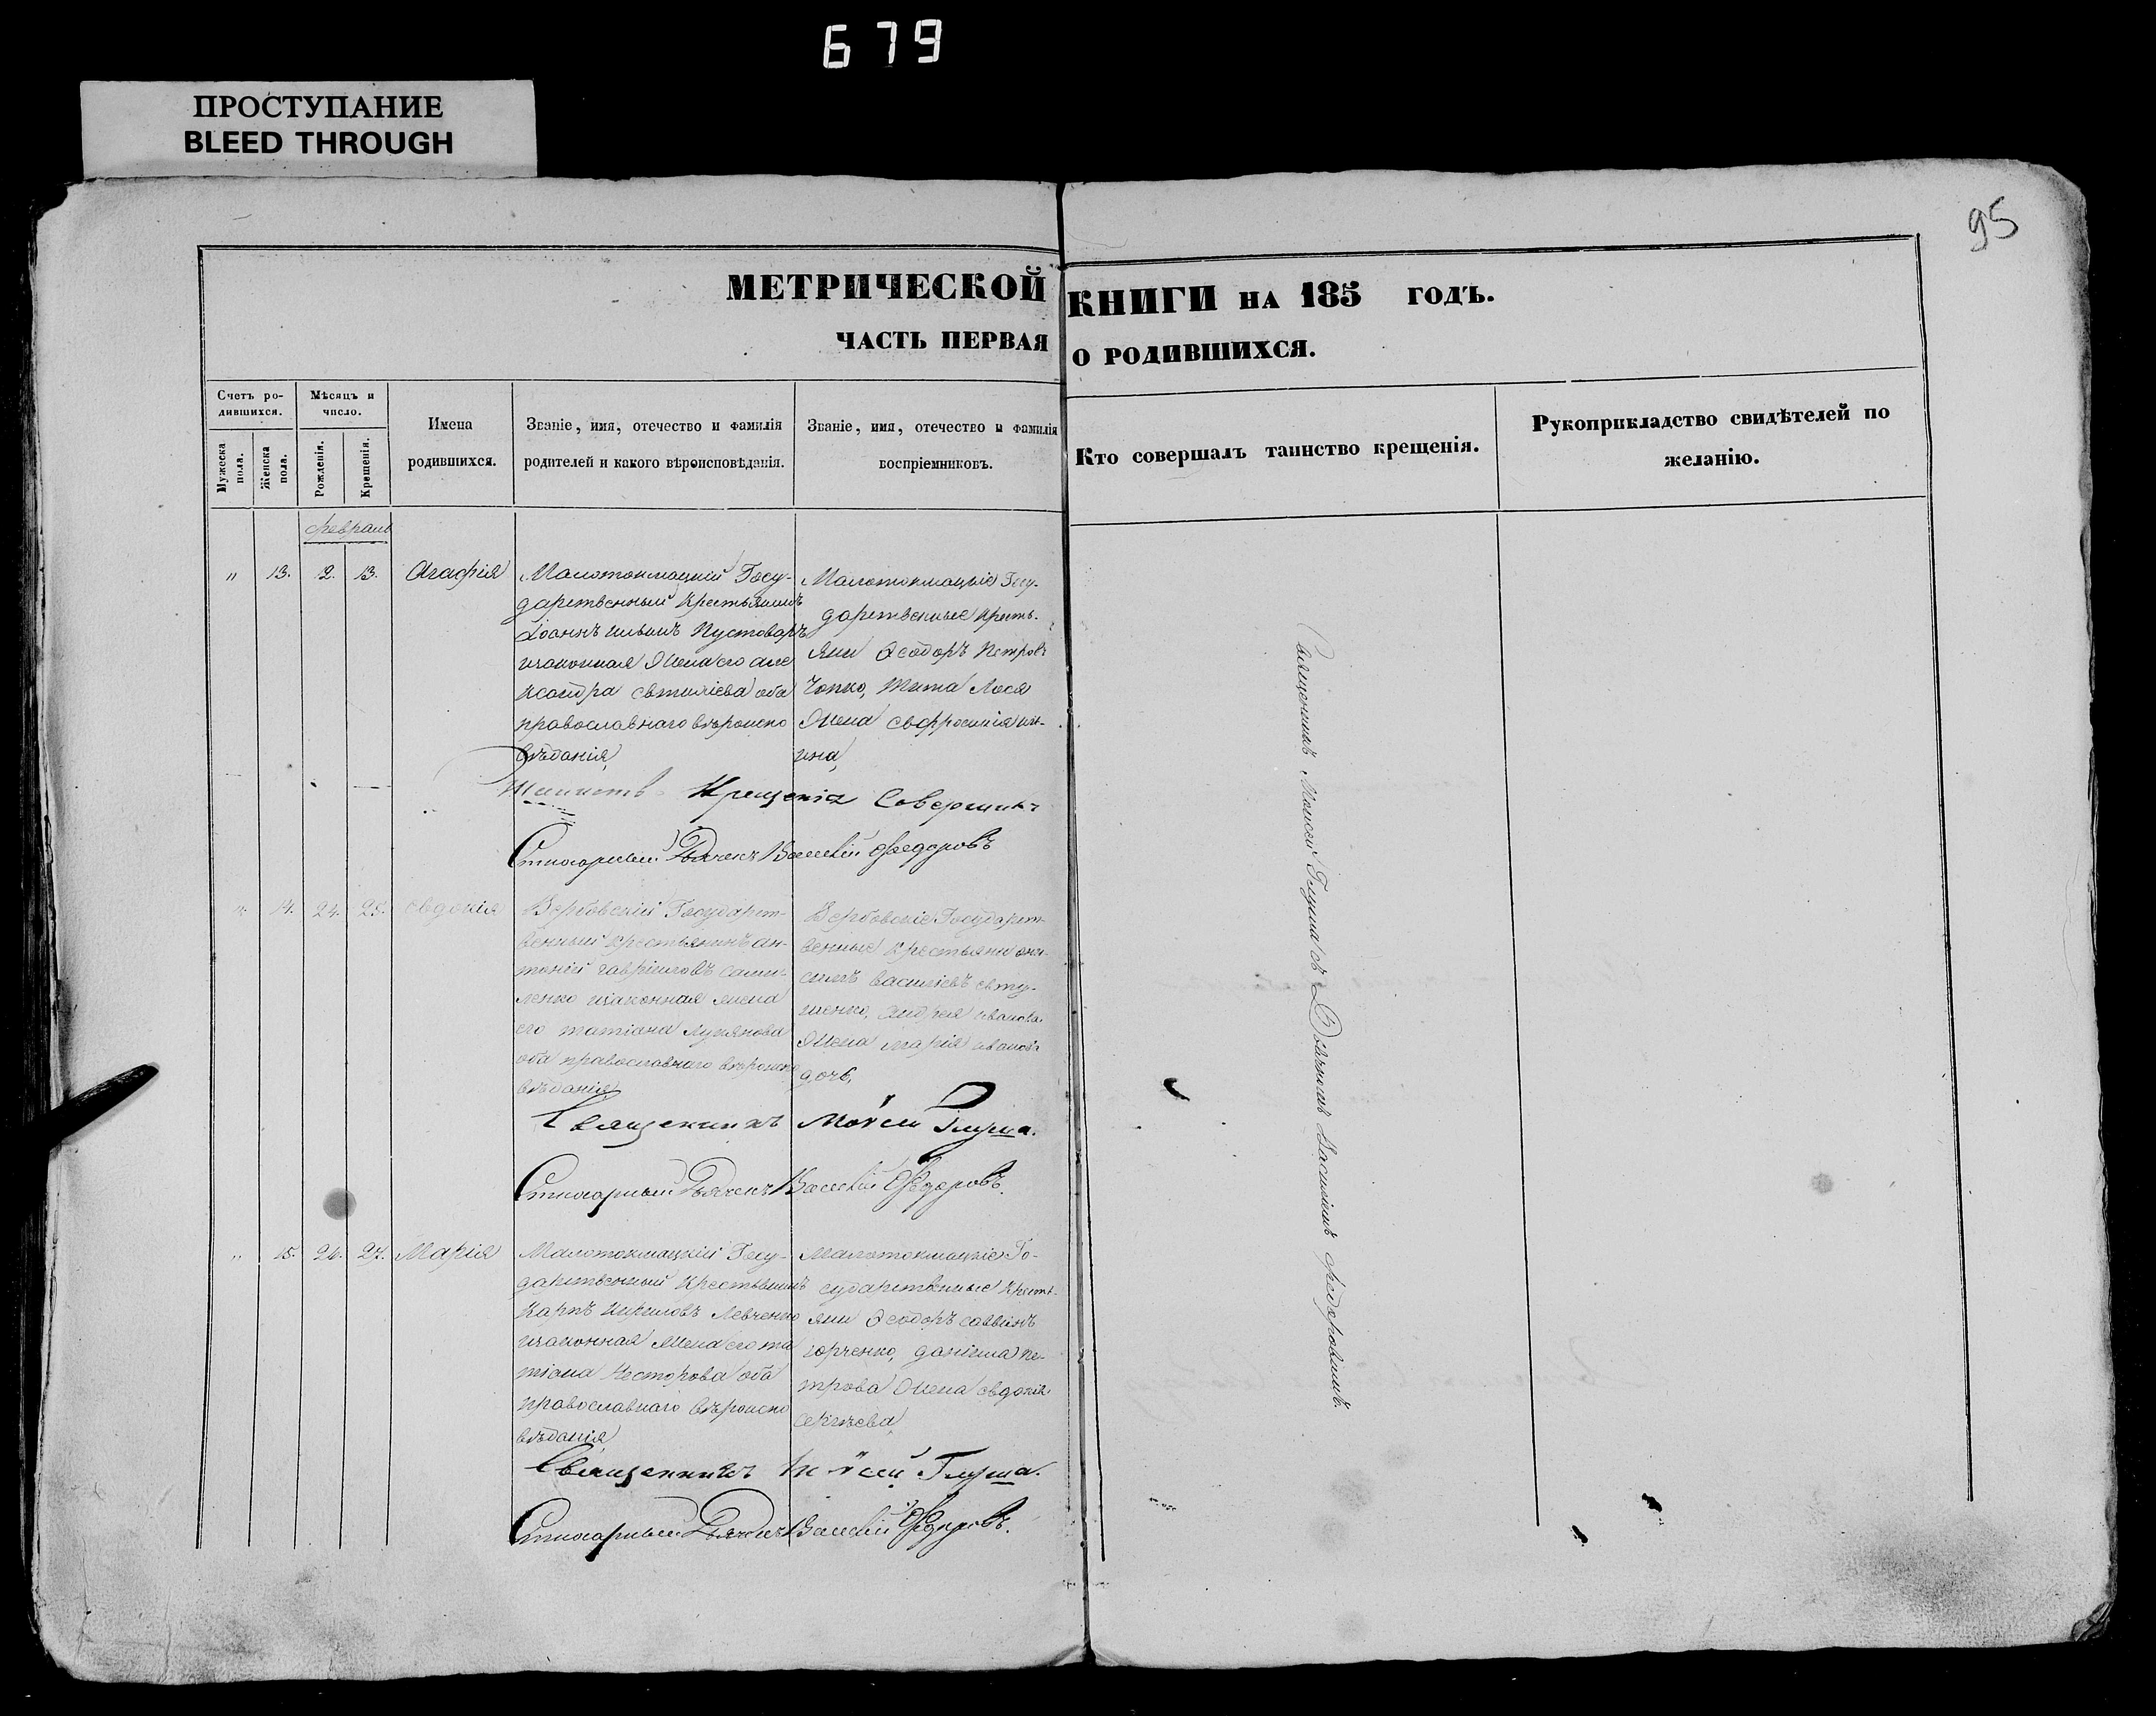 679
ПРОСТУПАНИЕ
BLEED THROUGH
95
МЕТРИЧЕСКОЙ КНИГИ НА 185 ГОДЪ.
ЧАСТЬ ПЕРВАЯ О РОДИВШИХСЯ.
Счетъ родившихся.
Мужеска пола.
Женска пола.
Мѣсяцъ и число.
Рожденія.
Крещенія.
Имена
родившихся.
Званіе, имя, отечество и фамилія
родителей и какого вѣроисповѣданія.
Званіе, имя, отечество и фамилія
воспріемниковъ.
Кто совершалъ таинство крещенія.
Рукоприкладство свидѣтелей по
желанію.
февраль
" 13. 2. 13. Агафія
Малотокмацкій Госу-
дарственный крестьянинъ
Іоаннъ Ильинъ Пустоваръ
изаконная Жена его але
ксандра евтихіева оба
православнаго вѣроиспо
вѣданія,
Малотокмацкіе Госу-
дарственные кресть-
яне Ѳеодоръ Петровъ
Чопко, Тита Лося
Жена евфросинія
Крещенія Совершилъ
Дьячекъ Василій Федоровъ
" 14. 24. 25. евдокія
Вербовскій Государст-
венный крестьянинъ ан-
тоній гавріиловъ Самой
ленко изаконная жена
его татіана Лукянова
оба православнаго вѣроиспо
вѣданія
Вербовскіе Государст-
венные крестьяне они-
симъ василіевъ евту-
шенко, андрея иванова
Жена марія иванова
дочь,
Священникъ Моѵсей Глуша.
Дьячекъ Василій Федоровъ.
" 15. 26. 27. Марія
Малотокмацкій Госу-
дарственный Крестьянинъ
Карпъ Кириловъ Левченко
изаконная Жена его та
тіана Несторова оба
православнаго вѣроиспо
вѣданія
Малотокмацкіе Го-
сударственные крестья
яне Ѳеодоръ саввинъ
юрченко, даніила пе-
трова Жена евдокія
Сергѣева,
Священникъ Моѵсей Глуша.
Дьячекъ Василій Федоровъ.
Священникъ Моисей Глуша съ Дьячкомъ Василіемъ федоровымъ.